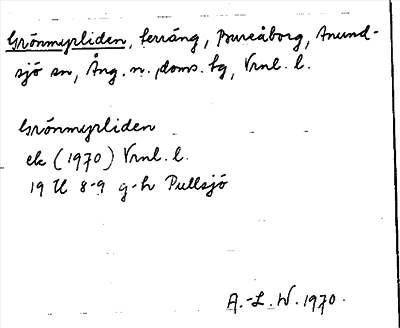 Grönmyrliden, terräng, Bureåborg, Anund-
sjö sn, Ång. n. doms. tg, Vrnl. l.
Grönmyrliden
ek (1970) Vrnl. l.
19 H 8-9 g-h Pullsjö
A.-L. W. 1970.